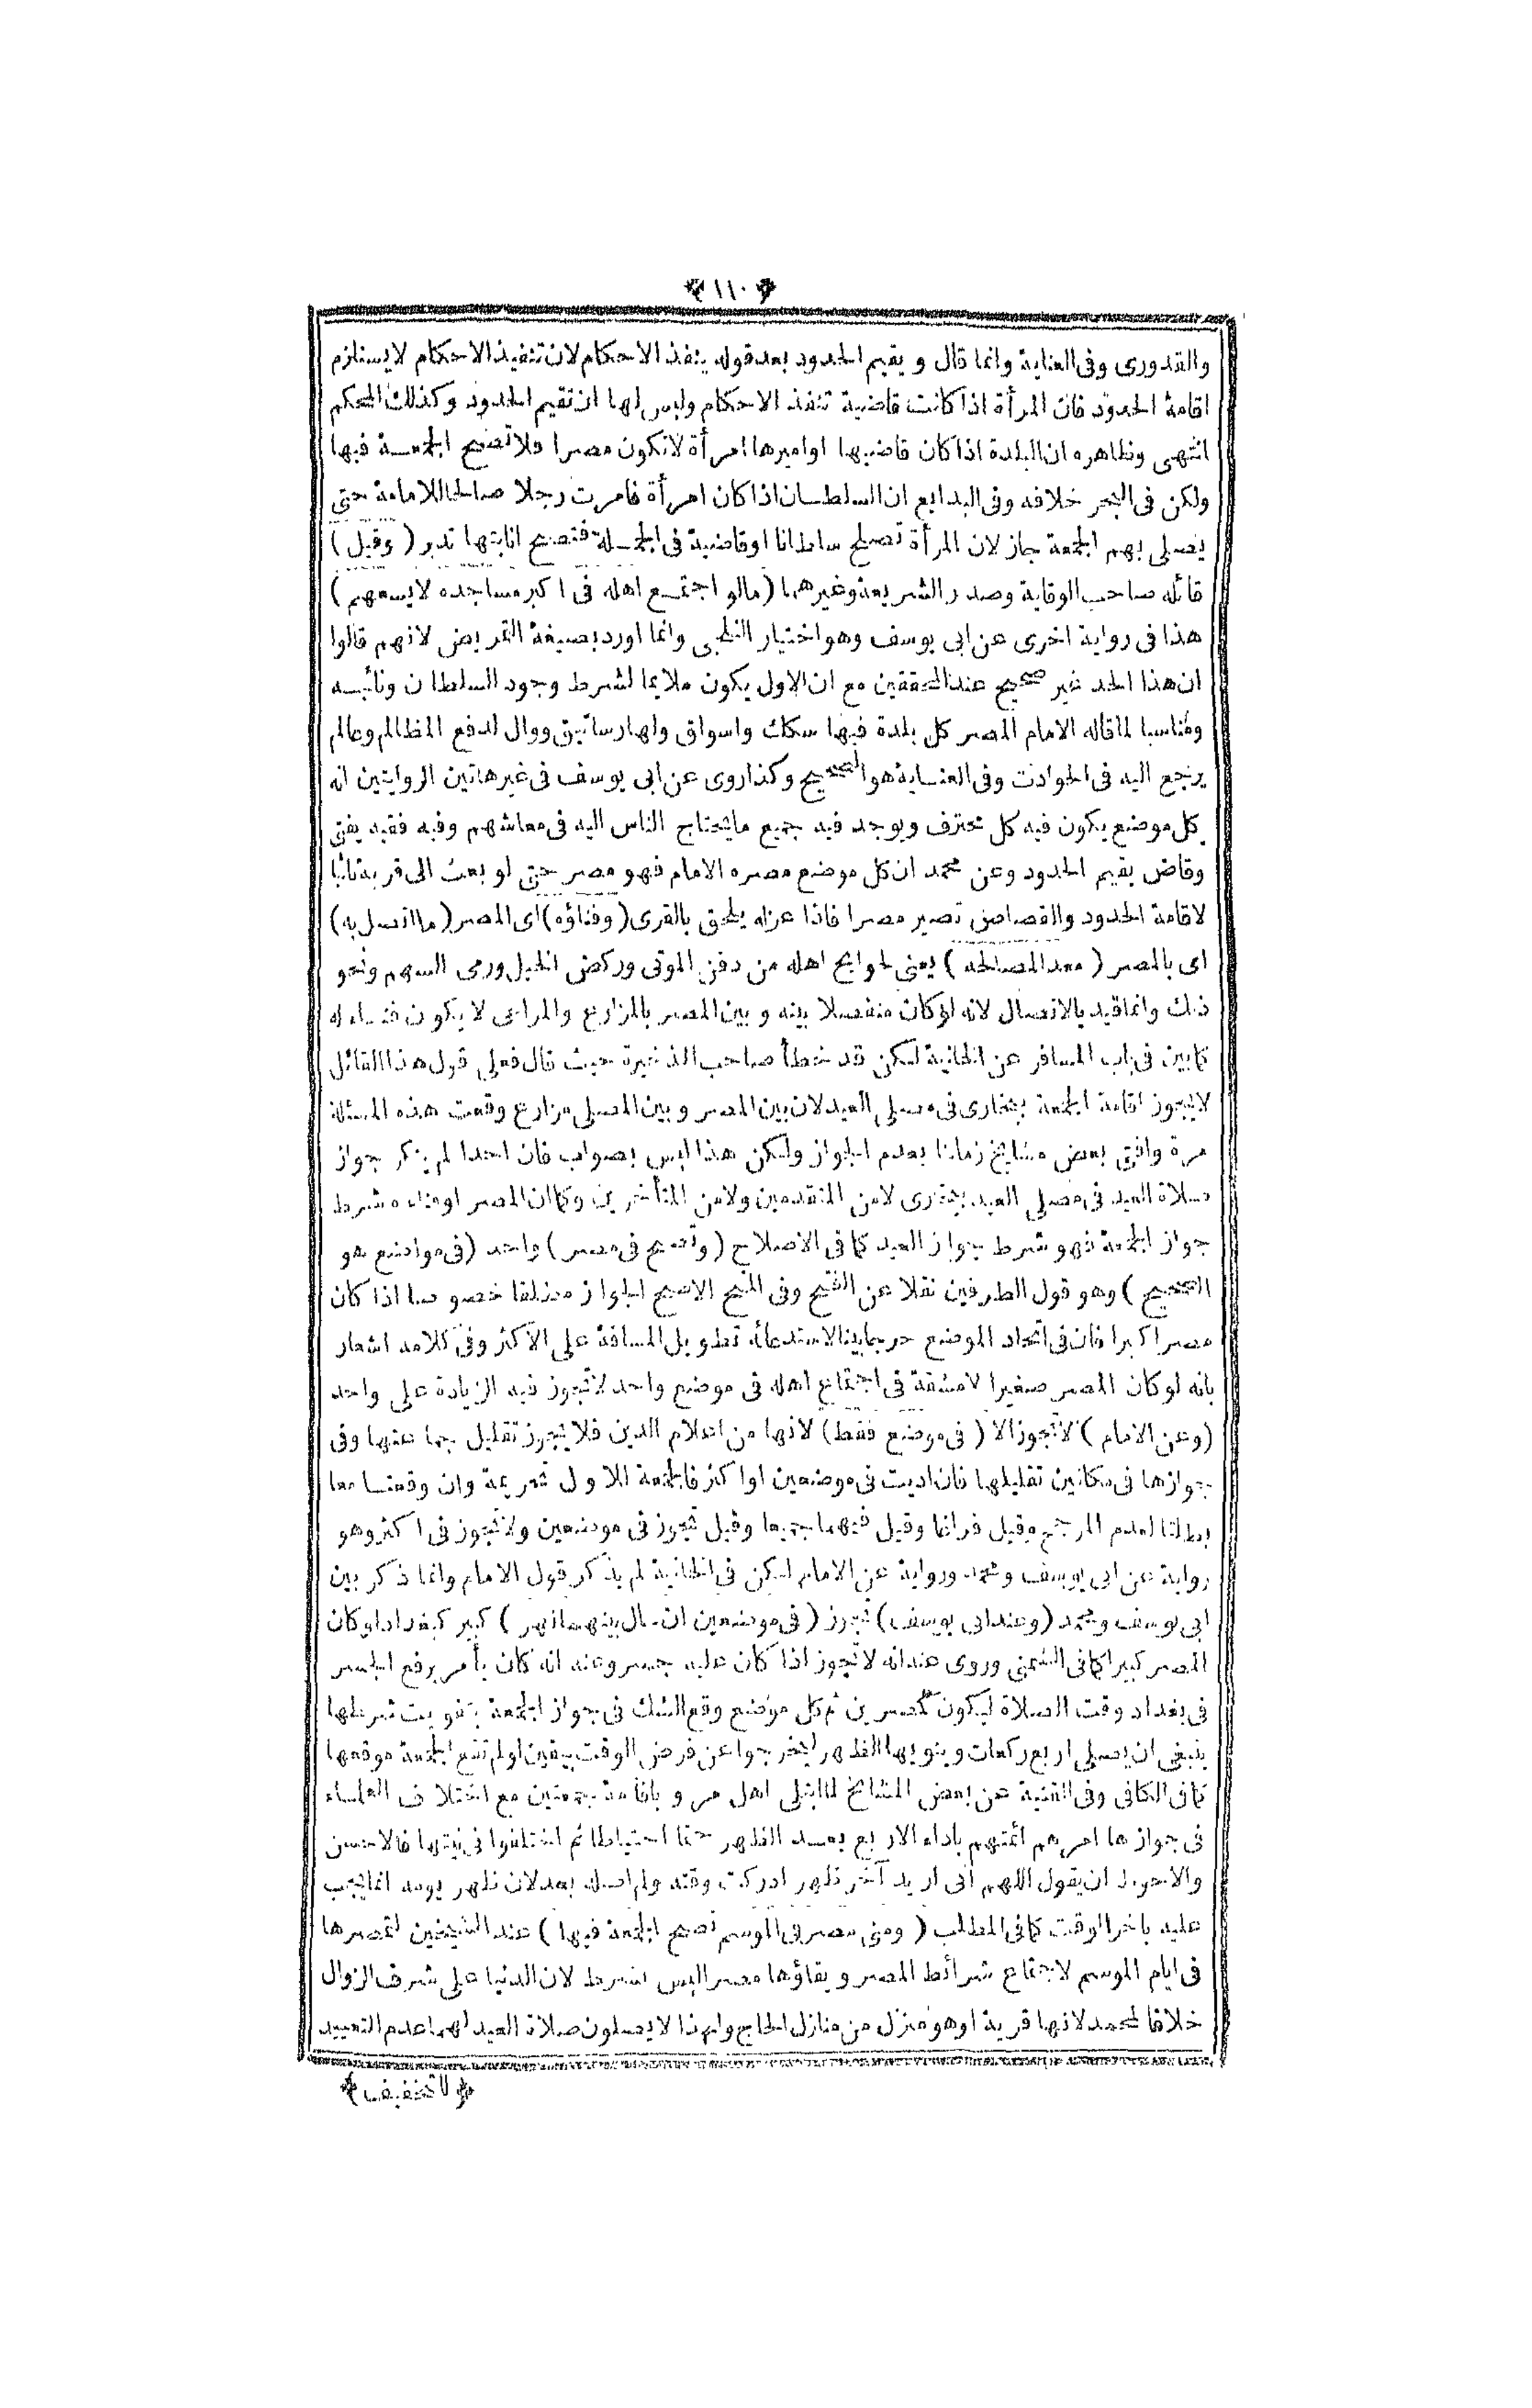 ﴿ ١١٠ ﴾
والقدورى وفى العناية وانما قال و يقيم الحدود بعد قوله ينفذ الاحكام لان تنفيذ الاحكام لايستلزم
اقامة الحدود فان المرأة اذا كانت قاضية تنفذ الاحكام وليس لها ان تقيم الحدود وكذلك المحكم
انتهى وظاهره ان البلدة اذا كان قاضيها اواميرها امرأة لاتكون مصرا فلا تصح الجمعة فيها
ولكن فى البحر خلافه وفى البدايع ان السلطان اذا كان امرأة فامرت رجلا صالحا للامامة حتى
يصلى بهم الجمعة جاز لان المرأة تصلح سلطانا اوقاضية فى الجملة فتصح انابتها تدبر ( وقيل )
قائله صاحب الوقاية وصدر الشريعة وغيرهما ( مالو اجتمع اهله فى اكبر مساجده لايسعهم )
هذا فى رواية اخرى عن ابى يوسف وهو اختيار الثلجى وانما اورد بصيغة التمريض لانهم قالوا
ان هذا الحد غير صحيح عند المحققين مع ان الاول يكون ملايما لشرط وجود السلطان ونائبه
ومناسبا لما قاله الامام المصر كل بلدة فيها سكك واسواق ولها رساتيق ووال لدفع المظالم وعالم
يرجع اليه فى الحوادث وفى العناية هو الصحيح وكذا روى عن ابى يوسف فى غير هاتين الروايتين انه
كل موضع يكون فيه كل محترف ويوجد فيه جميع مايحتاج الناس اليه فى معاشهم وفيه فقيه يفتى
وقاض يقيم الحدود وعن محمد ان كل موضع مصره الامام فهو مصر حتى لو بعث الى قرية نائبا
لاقامة الحدود والقصاص تصير مصرا فاذا عزله يلحق بالقرى ( وفناؤه ) اى المصر ( ما اتصل به )
اى بالمصر ( معد المصالحه ) يعنى لحوايج اهله من دفن الموتى وركض الخيل ورمى السهم ونحو
ذلك وانما قيد بالاتصال لانه لوكان منفصلا بينه و بين المصر بالمزارع والمراعى لا يكون فناء له
كما بين فى باب المسافر عن الخانية لكن قد خطأ صاحب الذخيرة حيث قال فعلى قول هذا القائل
لايجوز اقامة الجمعة ببخارى فى مصلى العيد لان بين المصر و بين المصلى مزارع وقعت هذه المسئلة
مرة وافتى بعض مشايخ زماننا بعدم الجواز ولكن هذا ليس بصواب فان احدا لم ينكر جواز
صلاة العيد فى مصلى العيد ببخارى لامن المتقدمين ولامن المتأخرين وكما ان المصر اوفناءه شرط
جواز الجمعة فهو شرط جواز العيد كما فى الاصلاح ( وتصح فى مصر ) واحد ( فى مواضع هو
الصحيح ) وهو قول الطرفين نقلا عن الفتح وفى المنح الاصح الجواز مطلقا خصوصا اذا كان
مصرا كبيرا فان فى اتحاد الموضع حرجا بينا لاستدعائه تطويل المسافة على الاكثر وفى كلامه اشعار
بانه لو كان المصر صغيرا لامشقة فى اجتماع اهله فى موضع واحد لاتجوز فيه الزيادة على واحد
( وعن الامام ) لاتجوز الا ( فى موضع فقط ) لانها من اعلام الدين فلا يجوز تقليل جماعتها وفى
جوازها فى مكانين تقليلها فان اديت فى موضعين اواكثر فالجمعة للاول تحريمة وان وقعتا معا
بطلتا لعدم المرجح وقيل فراغا وقيل فيهما جميعا وقيل تجوز فى موضعين ولاتجوز فى اكثر وهو
رواية عن ابى يوسف ومحمد ورواية عن الامام لكن فى الخانية لم يذكر قول الامام وانما ذكر بين
ابى يوسف ومحمد ( وعند ابى يوسف ) تجوز ( فى موضعين ان حال بينهما نهر ) كبير كبغداد اوكان
المصر كبيرا كما فى الشمنى وروى عنه انه لاتجوز اذا كان عليه جسر وعنه انه كان يأمر برفع الجسر
فى بغداد وقت الصلاة ليكون كمصرين ثم كل موضع وقع الشك فى جواز الجمعة بتفويت شرطها
ينبغى ان يصلى اربع ركعات وينوى بها الظهر ليخرجوا عن فرض الوقت بيقين لولم تقع الجمعة موقعها
كما فى الكافى وفى القنية عن بعض المشايخ لما ابتلى اهل مرو باقامة جمعتين مع اختلاف العلماء
فى جوازها امرهم ائمتهم باداء الاربع بعد الظهر حتما احتياطا ثم اختلفوا فى نيتها فالاحسن
والاحوط ان يقول اللهم انى اريد آخر ظهر ادركت وقته ولم اصله بعد لان ظهر يومه انما يجب
عليه باخر الوقت كما فى المطلب ( ومنى مصر فى الموسم تصح الجمعة فيها ) عند الشيخين لتمصرها
فى ايام الموسم لاجتماع شرائط المصر وبقاؤها مصرا ليس بشرط لان الدنيا على شرف الزوال
خلافا لمحمد لانها قرية اوهو منزل من منازل الحاج ولهذا لايصلون صلاة العيد لهما عدم التعييد
﴿ لاتخفيف ﴾